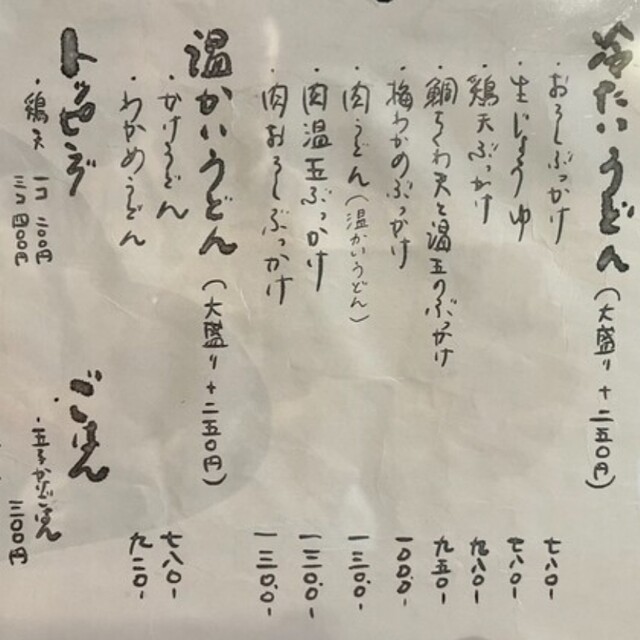 冷たいうどん(大盛り+二五〇円)
・おろしぶっかけ 七八〇-
・生じょうゆ 七八〇-
・鶏天ぶっかけ 九八〇-
・鯛ちくわ天と温玉のぶっかけ 九五〇-
・梅わかめぶっかけ 一〇〇〇-
・肉うどん(温かいうどん) 一三〇〇-
・肉温玉ぶっかけ 一三〇〇-
・肉おろしぶっかけ 一三〇〇-
温かいうどん(大盛り+二五〇円)
・かけうどん 七八〇-
・わかめうどん 九二〇-
トッピング
・鶏天 一コ 二〇〇円
三コ 四〇〇円
ごはん
・玉子かけごはん 三〇〇円